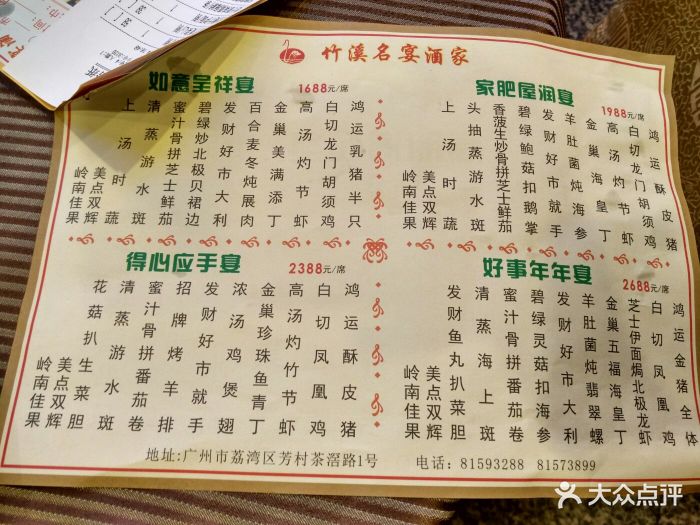 竹溪名宴酒家
如意呈祥宴 1688元/席
鸿运乳猪半只
白切龙门胡须鸡
高汤灼节虾
金巢美满添丁
百合麦冬炖展肉
发财好市大利
碧绿炒北极贝裙边
蜜汁骨拼芝士鲜茄
清蒸游水斑
上汤时蔬
美点双辉
岭南佳果
家肥屋润宴 1988元/席
鸿运酥皮猪
白切龙门胡须鸡
高汤灼节虾
金巢海皇丁
羊肚菌炖海参
发财好市
碧绿鲍菇扣鹅掌
香菠生炒骨拼芝士鲜茄
头抽蒸游水斑
上汤时蔬
美点双辉
岭南佳果
得心应手宴 2388元/席
鸿运酥皮猪
白切凤凰鸡
高汤灼竹节虾
金巢珍珠鱼青丁
浓汤鸡煲翅
发财好市就手
招牌烤羊排
蜜汁骨拼番茄卷
清蒸游水斑
花菇扒生菜胆
美点双辉
岭南佳果
好事年年宴 2688元/席
鸿运金猪全体
白切凤凰鸡
芝士伊面焗北极龙虾
金巢五福海皇丁
羊肚菌炖翡翠螺
发财好市
碧绿灵菇扣海参
蜜汁骨拼番茄卷
清蒸海上斑
发财鱼丸扒菜胆
美点双辉
岭南佳果
地址:广州市荔湾区芳村茶滘路1号 电话: 81593288 81573899
大众点评